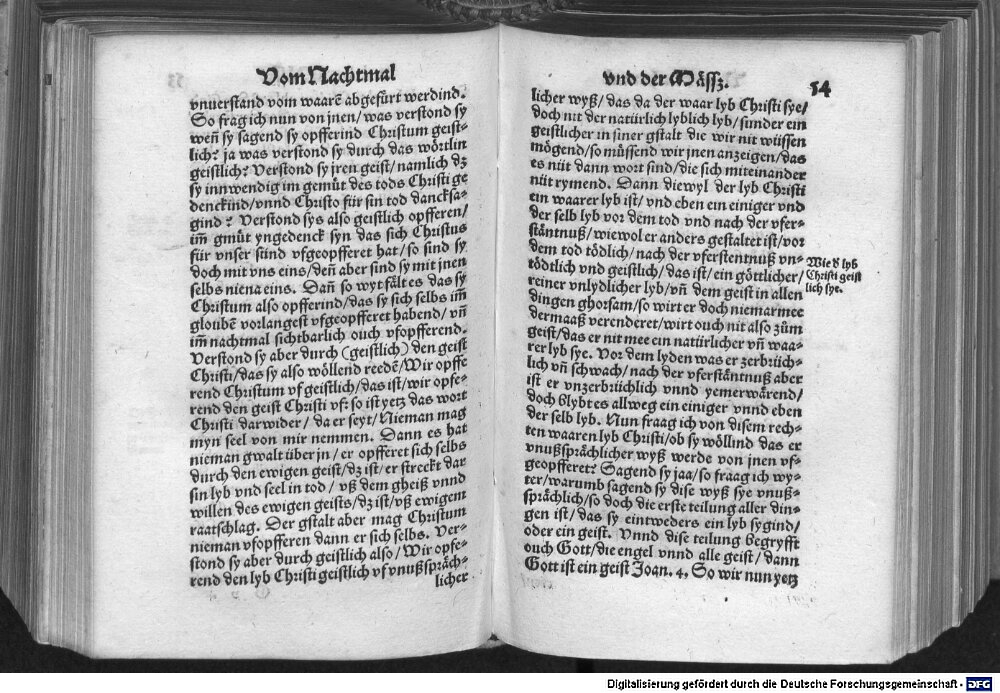 Vom Nachtmal
vnuerstand vom waarē abgefürt werdind.
So frag ich nun von jnen/was verstond sy
weñ sy sagend sy opfferind Christum geist-
lich? ja was verstond sy durch das wörtlin
geistlich? Verstond sy jren geist/namlich dz
sy innwendig im gemüt des tods Christi ge
denckind/vnnd Christo für sin tod dancksa-
gind? Verstond sys also geistlich opfferen/
im̄ gmüt yngedenck syn das sich Christus
für vnser sünd vfgeopfferet hat/so sind sy
doch mit vns eins/deñ aber sind sy mit jnen
selbs niena eins. Dañ so wyt fält es das sy
Christum also opfferind/das sy sich selbs im̄
gloubē vorlangest vfgeopfferet habend/vñ
im̄ nachtmal sichtbarlich ouch vfopfferend.
Verstond sy aber durch (geistlich) den geist
Christi/das sy also wöllend reeden/Wir opffe
rend Christum vf geistlich/das ist/wir opfe-
rend den geist Christi vf: so ist yetz das wort
Christi darwider/da er seyt/Nieman mag
myn seel von mir nemmen. Dann es hat
nieman gwalt über jn/er opfferet sich selbs
durch den ewigen geist/dz ist/er streckt dar
sin lyb vnd seel in tod/vß dem gheiß vnnd
willen des ewigen geists/dz ist/vß ewigem
raatschlag. Der gstalt aber mag Christum
nieman vfopfferen dann er sich selbs. Ver-
stond sy aber durch geistlich also/Wir opfe-
rend den lyb Christi geistlich vf vnußspräch-
licher
vnd der Mässz.
54
licher wyß/das da der waar lyb Christi sye/
doch nit der natürlich lyblich lyb/sunder ein
geistlicher in siner gstalt die wir nit wüssen
mögend/so müssend wir jnen anzeigen/das
es nüt dann wort sind/die sich miteinander
nüt rymend. Dann diewyl der lyb Christi
ein waarer lyb ist/vnd eben ein einiger vnd
der selb lyb vor dem tod vnd nach der vfer-
stäntnuß/wiewol er anders gestaltet ist/vor
dem tod tödlich/nach der vferstentnuß vn-
tödtlich vnd geistlich/das ist/ein göttlicher/
reiner vnlydlicher lyb/vñ dem geist in allen
dingen ghorsam/so wirt er doch niemarmee
dermaaß verenderet/wirt ouch nit also zům
geist/das er nit mee ein natürlicher vñ waa-
rer lyb sye. Vor dem lyden was er zerbrüch-
lich vñ schwach/nach der vferstäntnuß aber
ist er vnzerbrüchlich vnnd yemerwärend/
doch blybt es allweg ein einiger vnnd eben
der selb lyb. Nun fraag ich von disem rech-
ten waaren lyb Christi/ob sy wöllind das er
vnußsprächlicher wyß werde von jnen vf-
geopfferet? Sagend sy jaa/so fraag ich wy-
ter/warumb sagend sy dise wyß sye vnuß-
sprächlich/so doch die erste teilung aller din-
gen ist/das sy eintweders ein lyb sygind/
oder ein geist. Vnnd dise teilung begryfft
ouch Gott/die engel vnnd alle geist/dann
Gott ist ein geist Joan. 4. So wir nun yetz
Wie d lyb
Christi geist
lich sye.
Digitalisierung gefördert durch die Deutsche Forschungsgemeinschaft - DFG